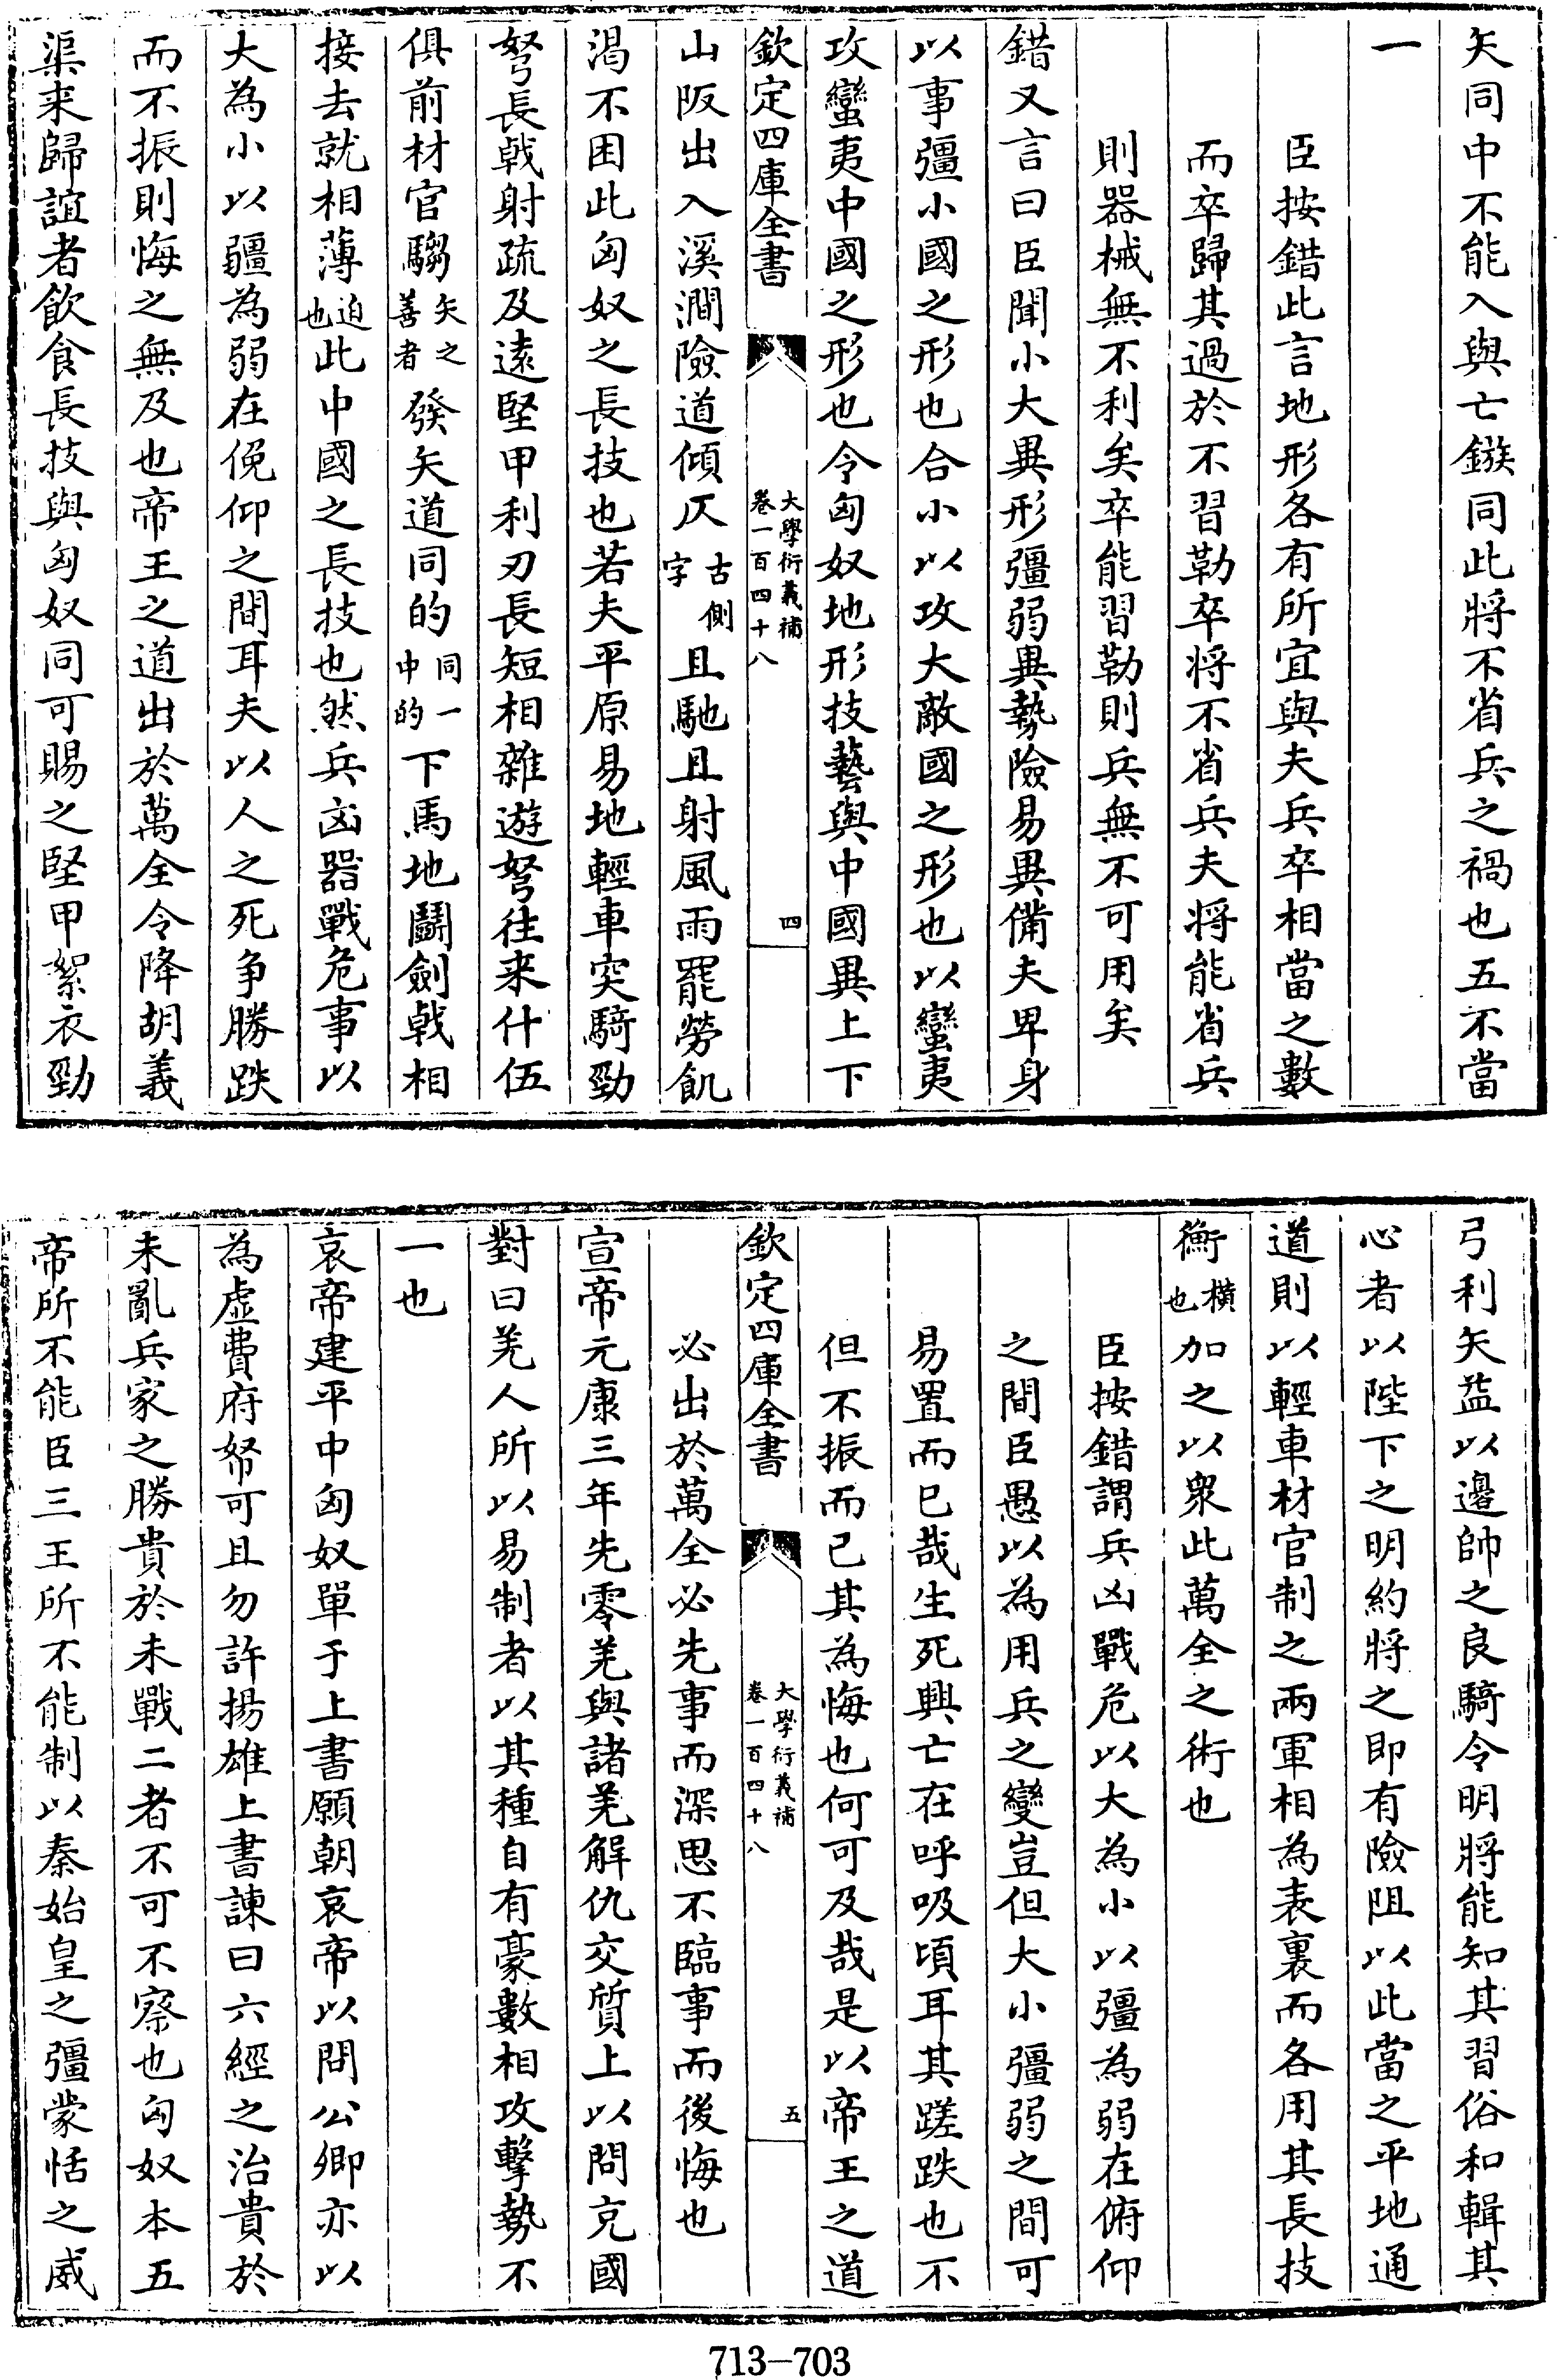 矢同中不能入與亡鏃同此將不省兵之禍也五不當
一
臣按錯此言地形各有所宜與夫兵卒相當之數
而卒歸其過於不習勒卒將不省兵夫將能省兵
則器械無不利矣卒能習勒則兵無不可用矣
錯又言曰臣聞小大異形彊弱異勢險易異備夫卑身
以事彊小國之形也合小以攻大敵國之形也以蠻夷
攻蠻夷中國之形也令匈奴地形技藝與中國異上下
欽定四庫全書 大學衍義補 卷一百四十八 四
山阪出入溪澗險道傾仄古側字且馳且射風雨罷勞飢
渴不困此匈奴之長技也若夫平原易地輕車突騎勁
弩長戟射疏及遠堅甲利刃長短相雜遊弩往来什伍
俱前材官騶矢之善者發矢道同的同一中的下馬地鬭劍戟相
接去就相薄迫也此中國之長技也然兵凶器戰危事以
大為小以彊為弱在俛仰之間耳夫以人之死争勝跌
而不振則悔之無及也帝王之道出於萬全令降胡義
渠来歸誼者飲食長技與匈奴同可賜之堅甲絮衣勁
弓利矢益以邊帥之良騎令明將能知其習俗和輯其
心者以陛下之明約將之即有險阻以此當之平地通
道則以輕車材官制之兩軍相為表裏而各用其長技
衡橫也加之以衆此萬全之術也
臣按錯謂兵凶戰危以大為小以彊為弱在俯仰
之間臣愚以為用兵之變豈但大小彊弱之間可
易置而已哉生死興亡在呼吸頃耳其蹉跌也不
但不振而已其為悔也何可及哉是以帝王之道
欽定四庫全書 大學衍義補 卷一百四十八 五
必出於萬全必先事而深思不臨事而後悔也
宣帝元康三年先零羌與諸羌解仇交質上以問充國
對曰羌人所以易制者以其種自有豪數相攻擊勢不
一也
哀帝建平中匈奴單于上書願朝哀帝以問公卿亦以
為虚費府帑可且勿許揚雄上書諫曰六經之治貴於
未亂兵家之勝貴於未戰二者不可不察也匈奴本五
帝所不能臣三王所不能制以秦始皇之彊蒙恬之威
713-703